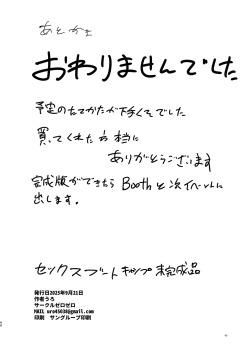 あとがき
おわりませんでした
予定のたてかたが下手くそでした
買ってくれた方本当に
ありがとうございます
完成版ができたら Boothと次イベントに
出します。
セックスブートキャンプ 未完成品
発行日2025年9月21日
作者うろ
サークルゼロゼロ
MAIL uro45038@gmail.com
印刷 サングループ印刷